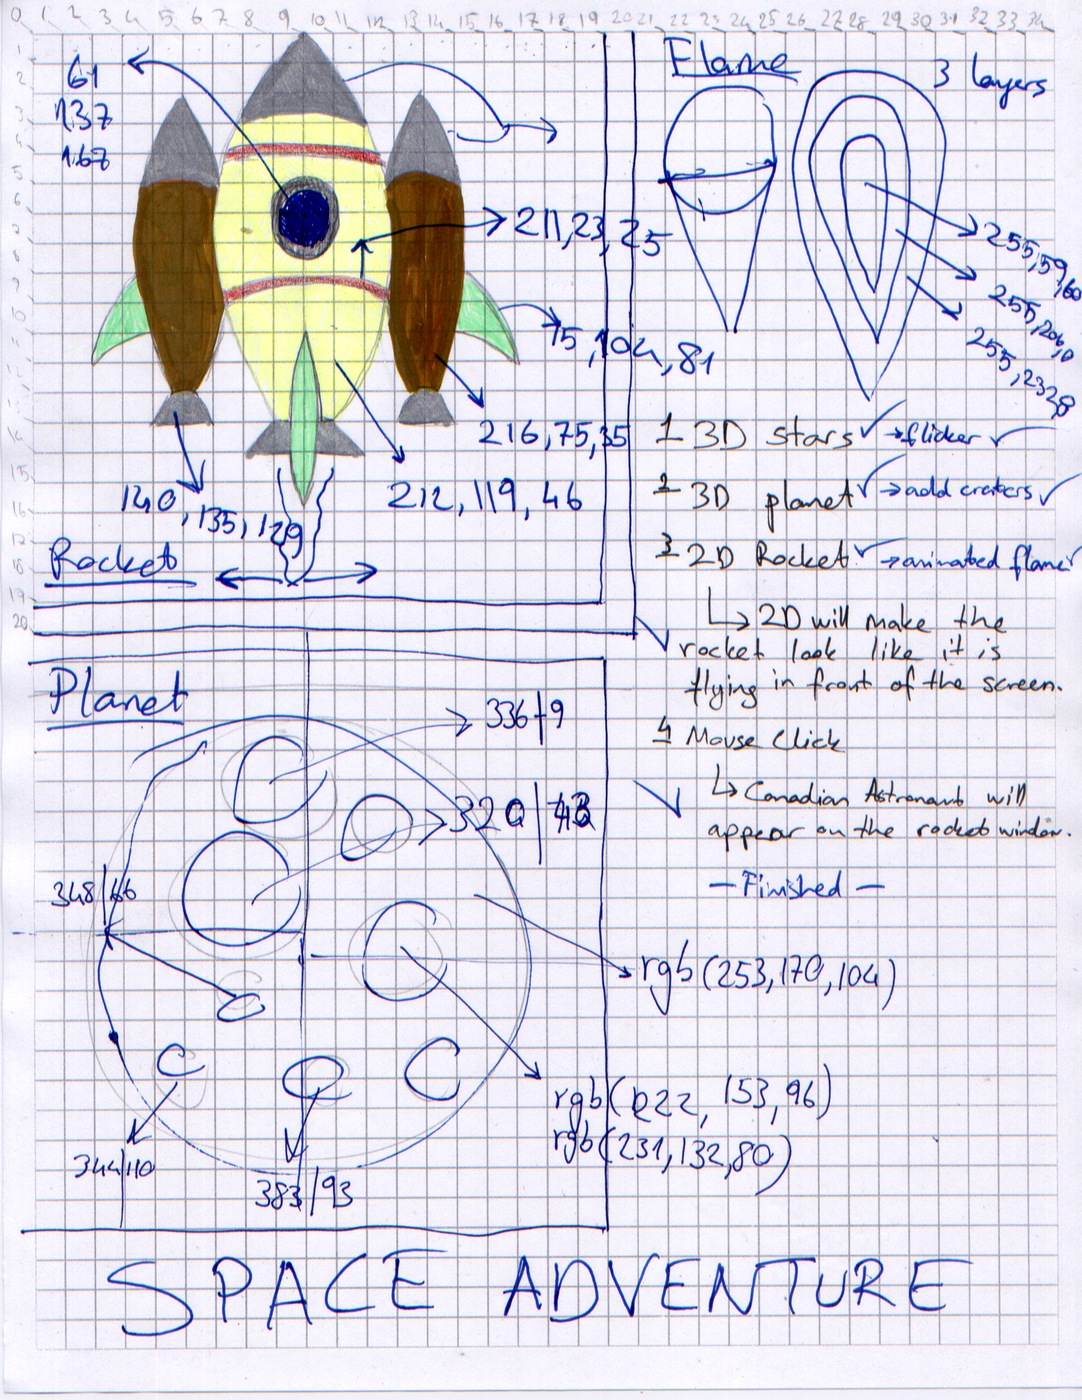 0 1 2 3 4 5 6 7 8 9 10 11 12 13 14 15 16 17 18 19 20 21 22 23 24 25 26 27 28 29 30 31 32 33 34
1
2
3
4
5
6
7
8
9
10
11
12
13
14
15
16
17
18
19
20
61
137
167
211,23,25
75,104,81
216,75,35
212,119,46
140,135,129
Rocket
Flame
3 layers
255,59,60
255,206,0
255,232,8
1 3D stars → flicker
2 3D planet → add craters
3 2D Rocket → animated flame
↳ 2D will make the
rocket look like it is
flying in front of the screen.
4 Mouse Click
↳ Canadian Astronaut will
appear on the rocket window.
— Finished —
Planet
336|9
348|66
rgb(253,170,104)
rgb(222,153,96)
rgb(231,132,80)
344|110
383|93
SPACE ADVENTURE